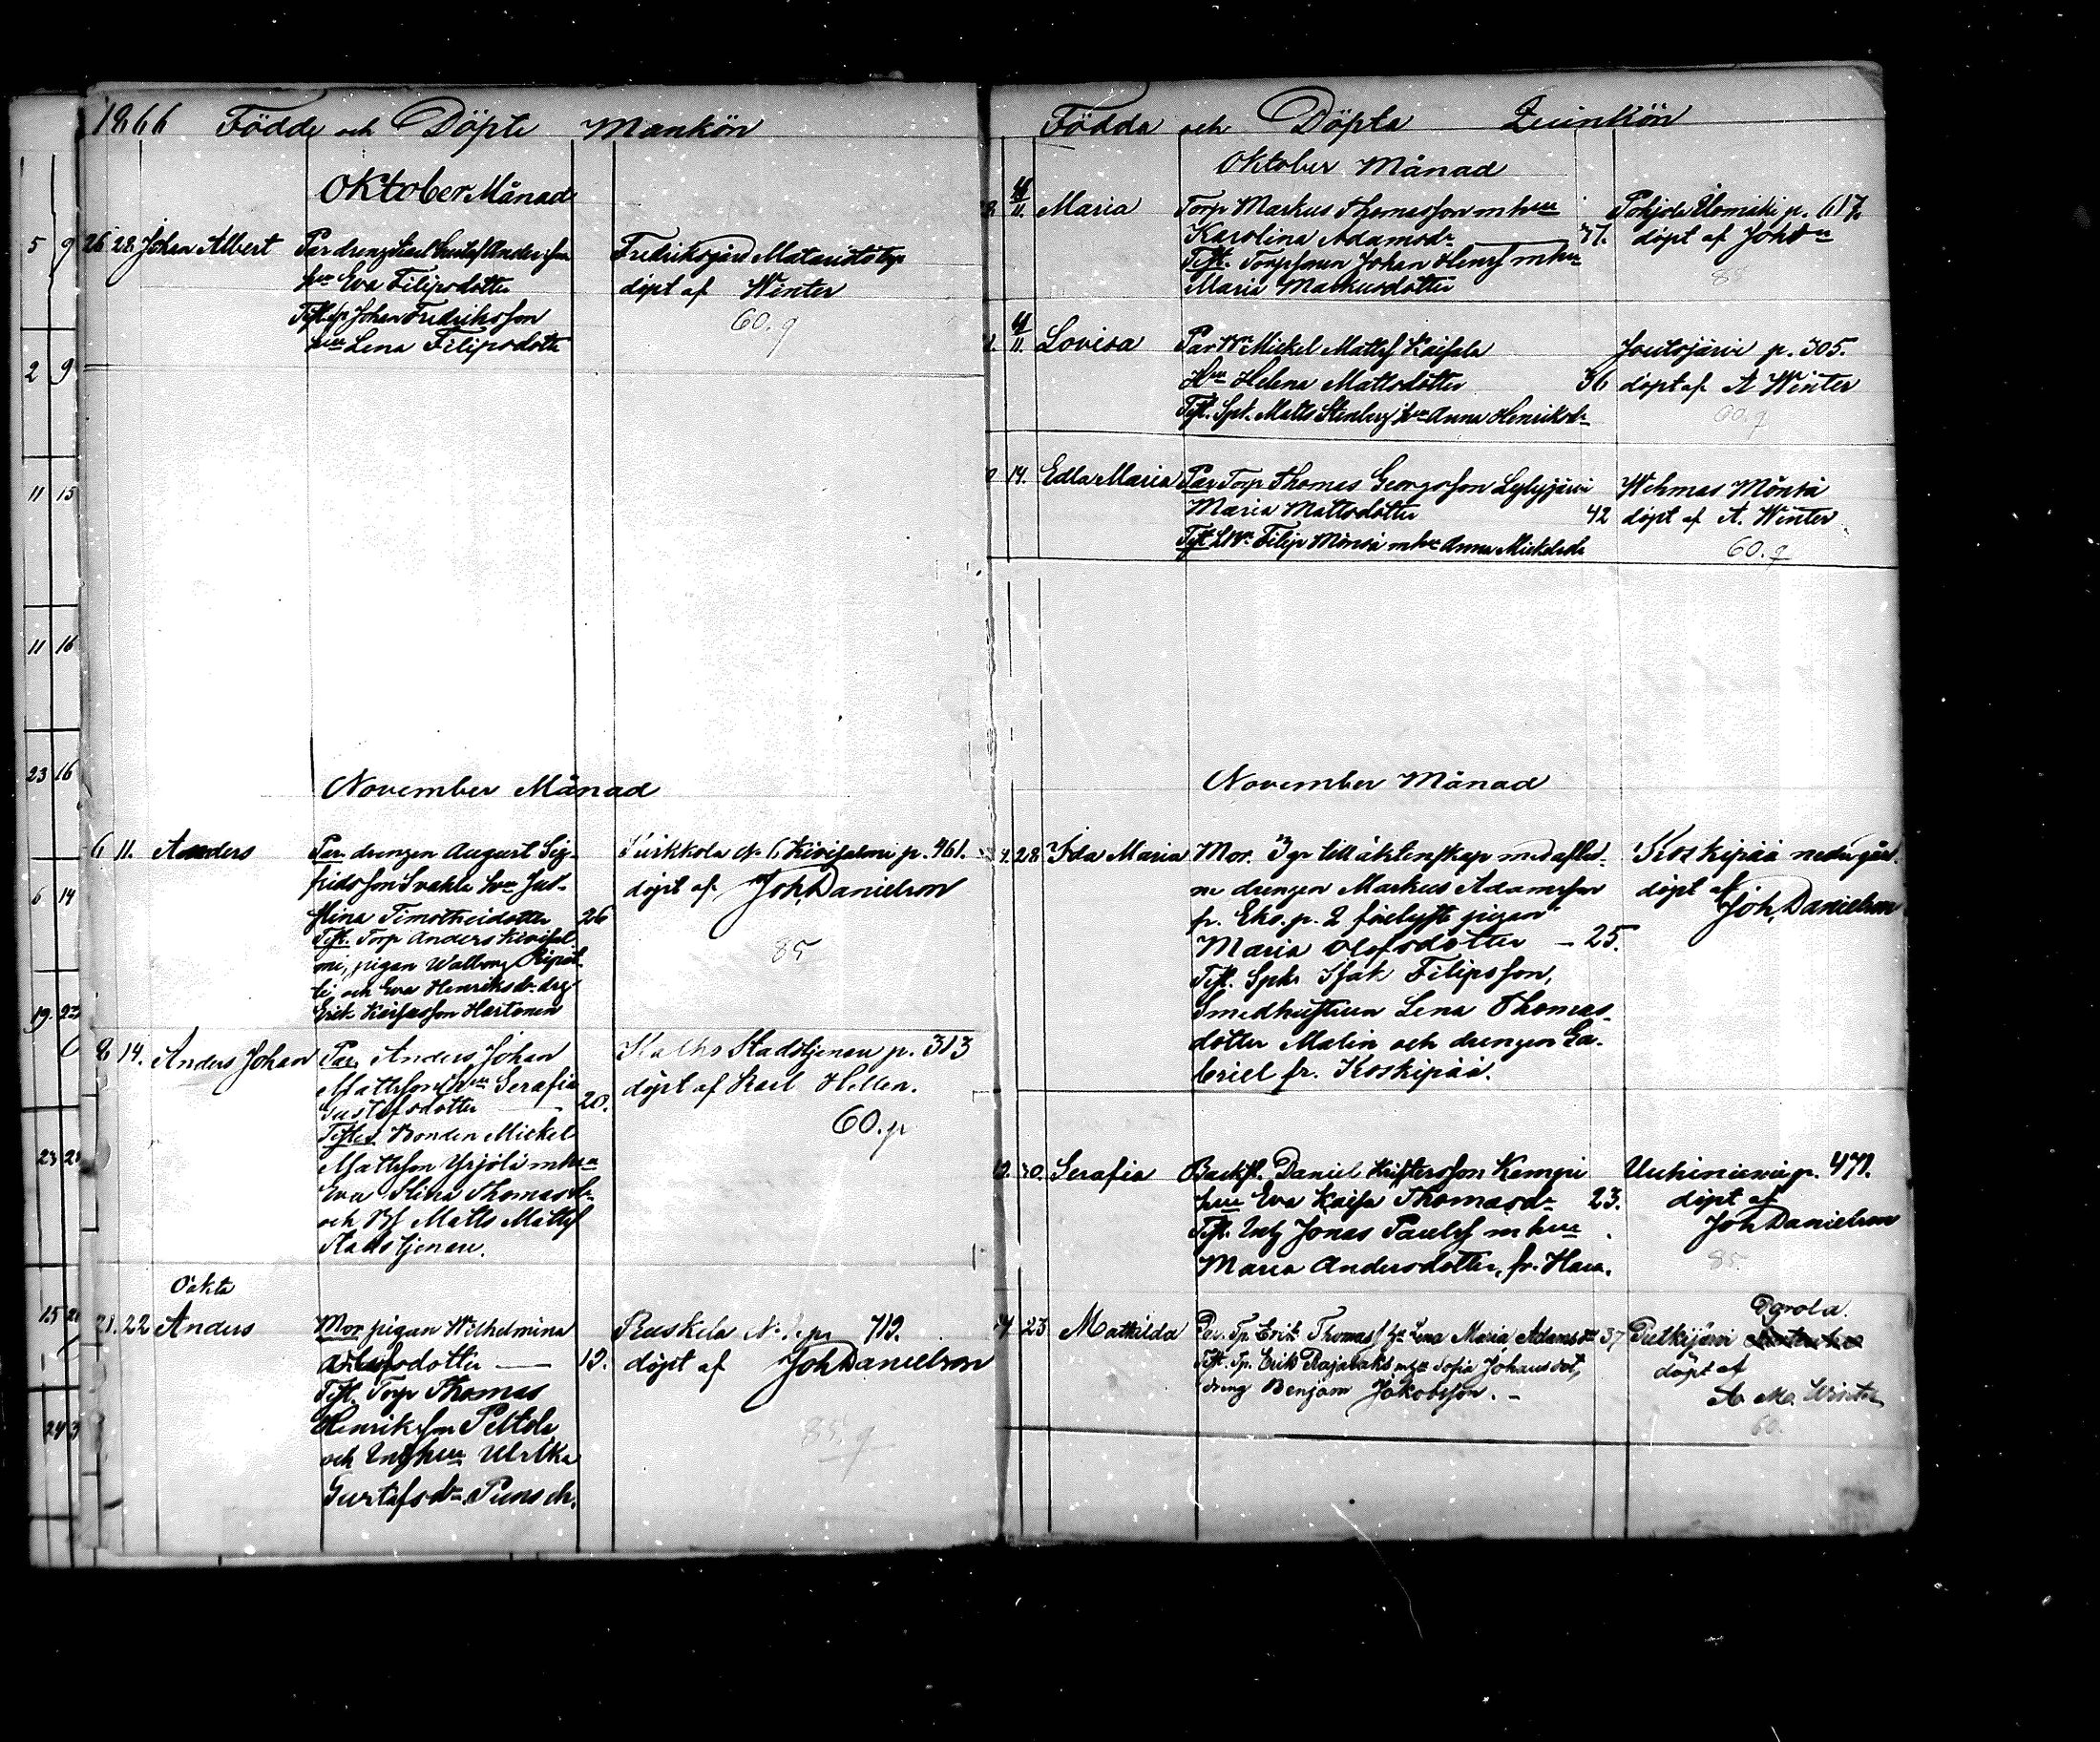 1866 Födde och Döpte Mankön
Oktober Månad
5 9 26 28 Johan Albert Par drengen Karl Gustaf Andersson
hu Eva Filipsdotter
Test. Johan Fredriksson
hun Lena Filipsdotter
Fredriksgård
döpt af Winter
60. q
2 9
11 15
11 16
23 16
November Månad
6 11. Anders Par. drengen August Sig-
fridsson hu Jus-
tina Timotheidotter 26
Test. Torp Anders Kivisal-
mi, pigan Walborg
och Eva Henriksdr drg
Erik Hartonen
Kirkkola No 6 Kivisalmi p. 461.
döpt af Joh. Danielson
85
6 14
19. 23
8 14. Anders Johan Par. Anders Johan
Mattsson hun Serafia
Gustafsdotter 20.
Testes Bonden Mickel
Mattsson Yrjölä m hun
Eva Stina Thomasdr
och Bf Matts Mattsf
Stadstjenare.
Kalho Stadstjenare p. 313
döpt af Karl Hellen.
60. p
23
Oäkta
15 21. 22 Anders Mor pigan Wilhelmina
dotter — 19.
Test. Torp Thomas
Henriksson Peltola
och Inh hun Ulrika
Gustafsdr Punsch.
Ruskela No p. 719.
döpt af Joh Danielson
85. q
24
Födda och Döpta Quinkön
Oktober Månad
11. Maria Torp Markus Thomasson m hun
Karolina Adamsdr 37.
Test. Torpsonen Johan Henrsf m hu
Maria Markusdotter
Pohjola p. 617.
döpt af Johsn
11. Lovisa Par Mickel Mattsf Kaisala
Hun Helena Mattsdotter 36
Test. Spt. Matts Stenberg hun Anna Henriksdr
Joutsjärvi p. 305.
döpt af A Winter
60. q
14. Edla Maria Par Torp Thomas Georgsson Lylyjärvi
Maria Mattsdotter 42
Test Filip Mönsä m hu Anna Mickelsdr
Wehmas Mönsä
döpt af A. Winter
60. q
November Månad
4. 28 Ida Maria Mor. 3 gr till äktenskap med aflid-
ne drengen Markus Adamsson
fr. Eko. p. 2 förelyste pigan
Maria Olofsdotter — 25.
Test. Spkr Isak Filipsson,
Smedhustrun Lena Thomas-
dotter Malin och drengen Ga-
briel fr. Koskipää.
Koskipää nedergård.
döpt af
Joh. Danielson
12. 30. Serafia Backst. Daniel Kristersson Kemppi
hun Eva Kaisa Thomasdr 23.
Test. Inh Jonas Paulsf m hun
Maria Andersdotter, fr. Hara.
Uuhiniemi p. 471.
döpt af
Joh Danielson
85.
14 23 Mathilda Par. Tp. Erik Thomasf hu Lena Maria Adamsdr 37
Test. Tp. Erik Rajalaks m hu Sofia Johansdot,
dreng Benjam Jakobsson. –
Putkijärvi
döpt af
A. M. Winter
60.